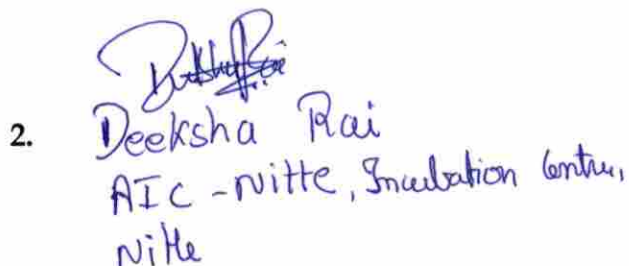 2. Deeksha Rai
AIC - Nitte, Incubation Centre,
Nitte